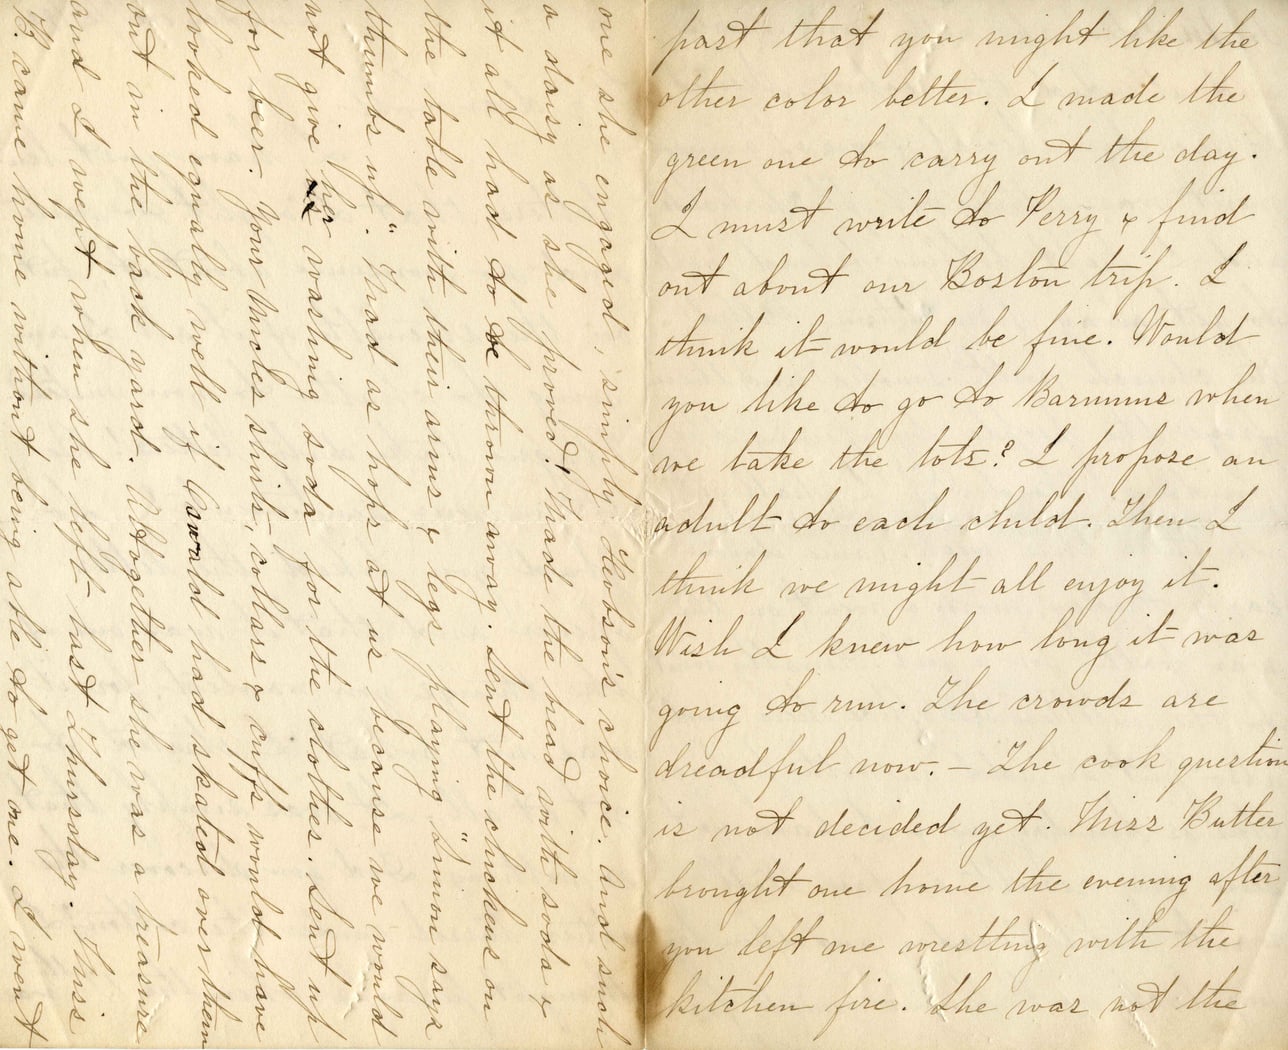 past that you might like the
other color better. I made the
green one to carry out the day.
I must write to Perry & find
out about our Boston trip. I
think it would be fine. Would
you like to go to Barnums when
we take the tots? I propose an
adult to each child. Then I
think we might all enjoy it.
Wish I knew how long it was
going to run. The crowds are
dreadful now. – The cook question
is not decided yet. Miss Butter
brought one home the evening after
you left me wrestling with the
kitchen fire. She was not the
one she engaged, simply Hobson's choice. And such
a daisy as she proved! Made the bread with soda &
it all had to be thrown away. Sent the chickens on
the table with their arms & legs playing "Simon says
thumbs up". Mad as hops at us because we would
not give her washing soda for the clothes. Sent up
for beer. Your Uncles shirts, collars & cuffs would have
looked equally well if Oswald had skated over them
out in the back yard. Altogether she was a treasure
and I wept when she left last Thursday. Miss
B. came home without being able to get one. I went